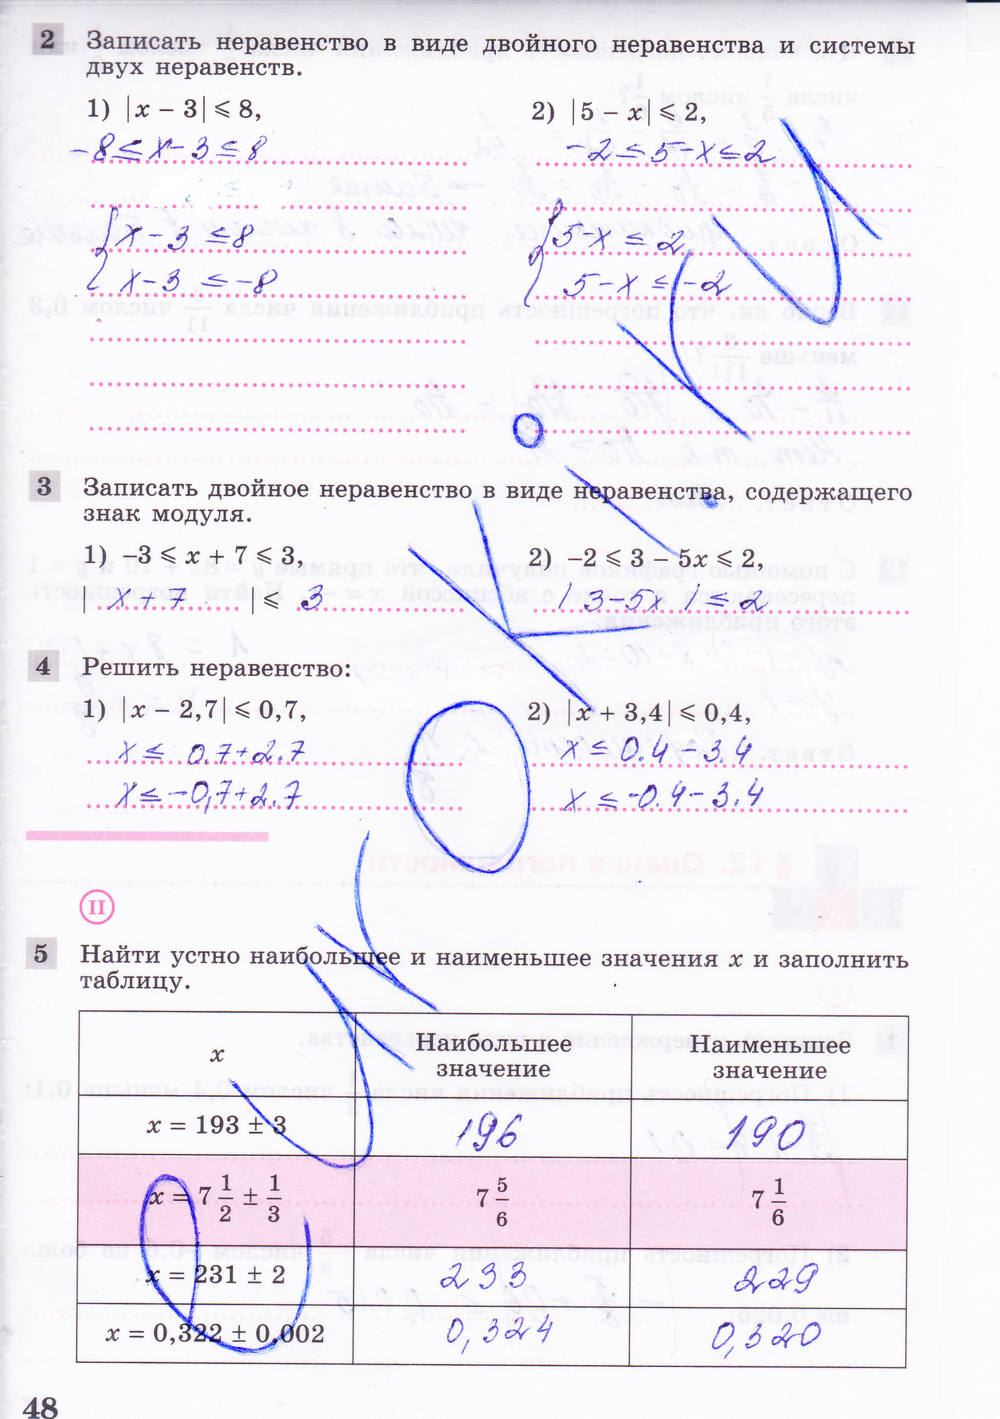 2 Записать неравенство в виде двойного неравенства и системы
двух неравенств.
1) |x − 3| ⩽ 8, 2) |5 − x| ⩽ 2,
-8 ≤ x-3 ≤ 8 -2 ≤ 5-x ≤ 2
{ x-3 ≤ 8 { 5-x ≤ 2
x-3 ≤ -8 5-x ≤ -2
3 Записать двойное неравенство в виде неравенства, содержащего
знак модуля.
1) −3 ⩽ x + 7 ⩽ 3, 2) −2 ⩽ 3 − 5x ⩽ 2,
| x+7 | ⩽ 3 |3-5x| ≤ 2
4 Решить неравенство:
1) |x − 2,7| ⩽ 0,7, 2) |x + 3,4| ⩽ 0,4,
x ≤ 0.7+2.7 x ≤ 0.4-3.4
x ≤ -0,7+2.7 x ≤ -0.4-3.4
II
5 Найти устно наибольшее и наименьшее значения x и заполнить
таблицу.
x Наибольшее значение Наименьшее значение
x = 193 ± 3 196 190
x = 7 1/2 ± 1/3 7 5/6 7 1/6
x = 231 ± 2 233 229
x = 0,322 ± 0,002 0,324 0,320
48